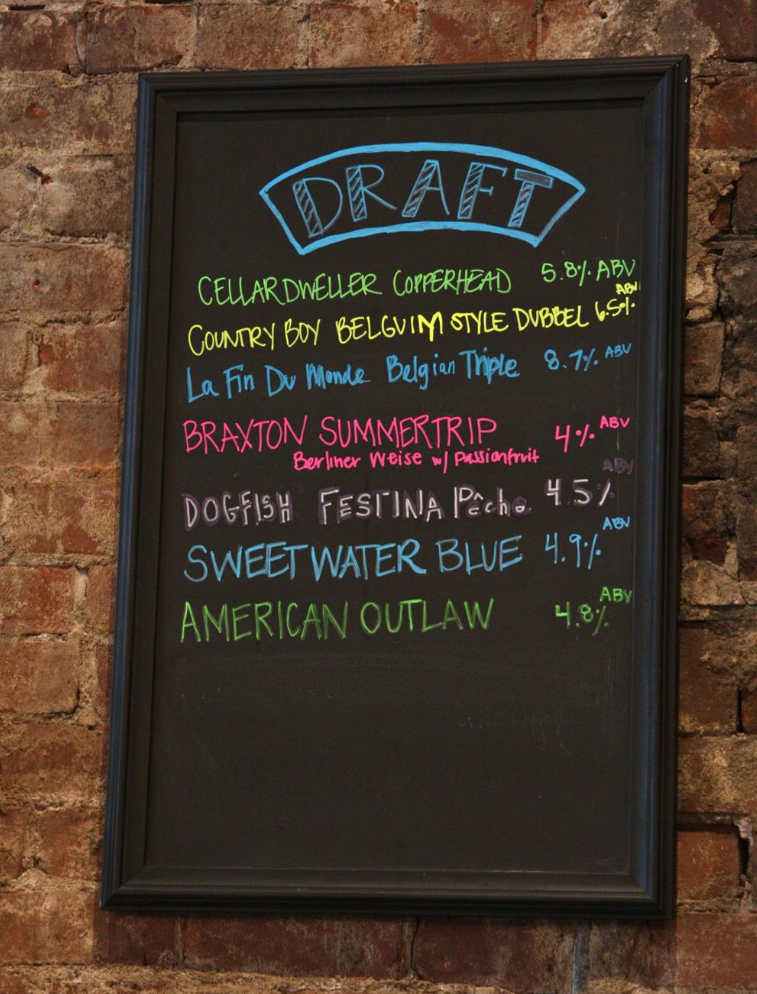 DRAFT
CELLARDWELLER COPPERHEAD 5.8% ABV
COUNTRY BOY BELGUIM STYLE DUBBEL 6.5% ABV
La Fin Du Monde Belgian Triple 8.7% ABV
BRAXTON SUMMERTRIP 4% ABV
Berliner Weise w/ Passionfruit
DOGFISH FESTINA Pêche 4.5% ABV
SWEETWATER BLUE 4.9% ABV
AMERICAN OUTLAW 4.8% ABV